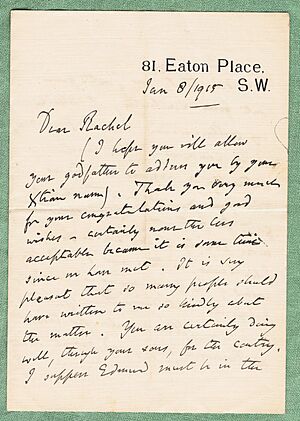 81. Eaton Place.
S.W.
Jan 8/1915
Dear Rachel
(I hope you will allow
your godfather to address you by your
Xtian name). Thank you very much
for your congratulations and good
wishes - certainly none the less
acceptable because it is some time
since we have met. It is very
pleasant that so many people should
have written to me so kindly about
the matter. You are certainly doing
well, through your sons, for the country.
I suppose Edmund must be in the